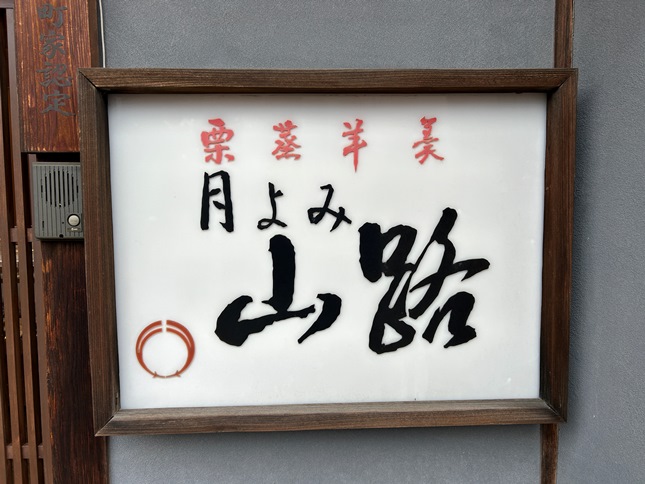 町家認定
栗蒸羊羹
月よみ
山路